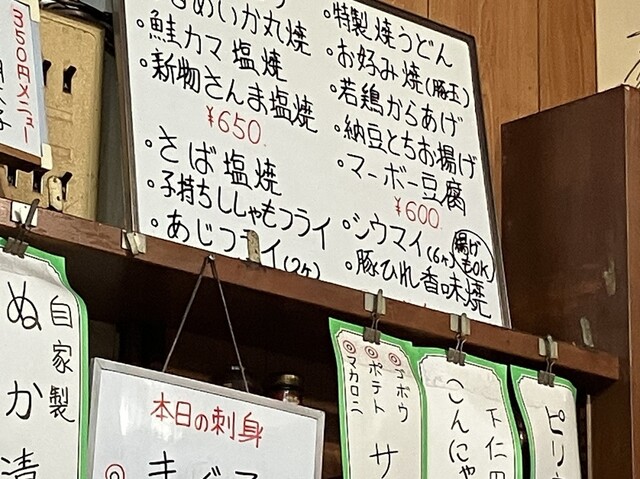 350円メニュー
めいか丸焼
・鮭カマ塩焼
・新物さんま塩焼
¥650.
・さば塩焼
・子持ちししゃもフライ
・あじフライ(2ヶ)
・特製焼うどん
・お好み焼(豚玉)
・若鶏からあげ
・納豆とちお揚げ
・マーボー豆腐
¥600.
・シウマイ(6ヶ) 揚げもOK
・豚ひれ香味焼
自家製
ぬか漬
本日の刺身
◎まぐろ
◎ゴボウ
◎ポテト
◎マカロニ
サ
下仁田
こんにゃ
ピリ